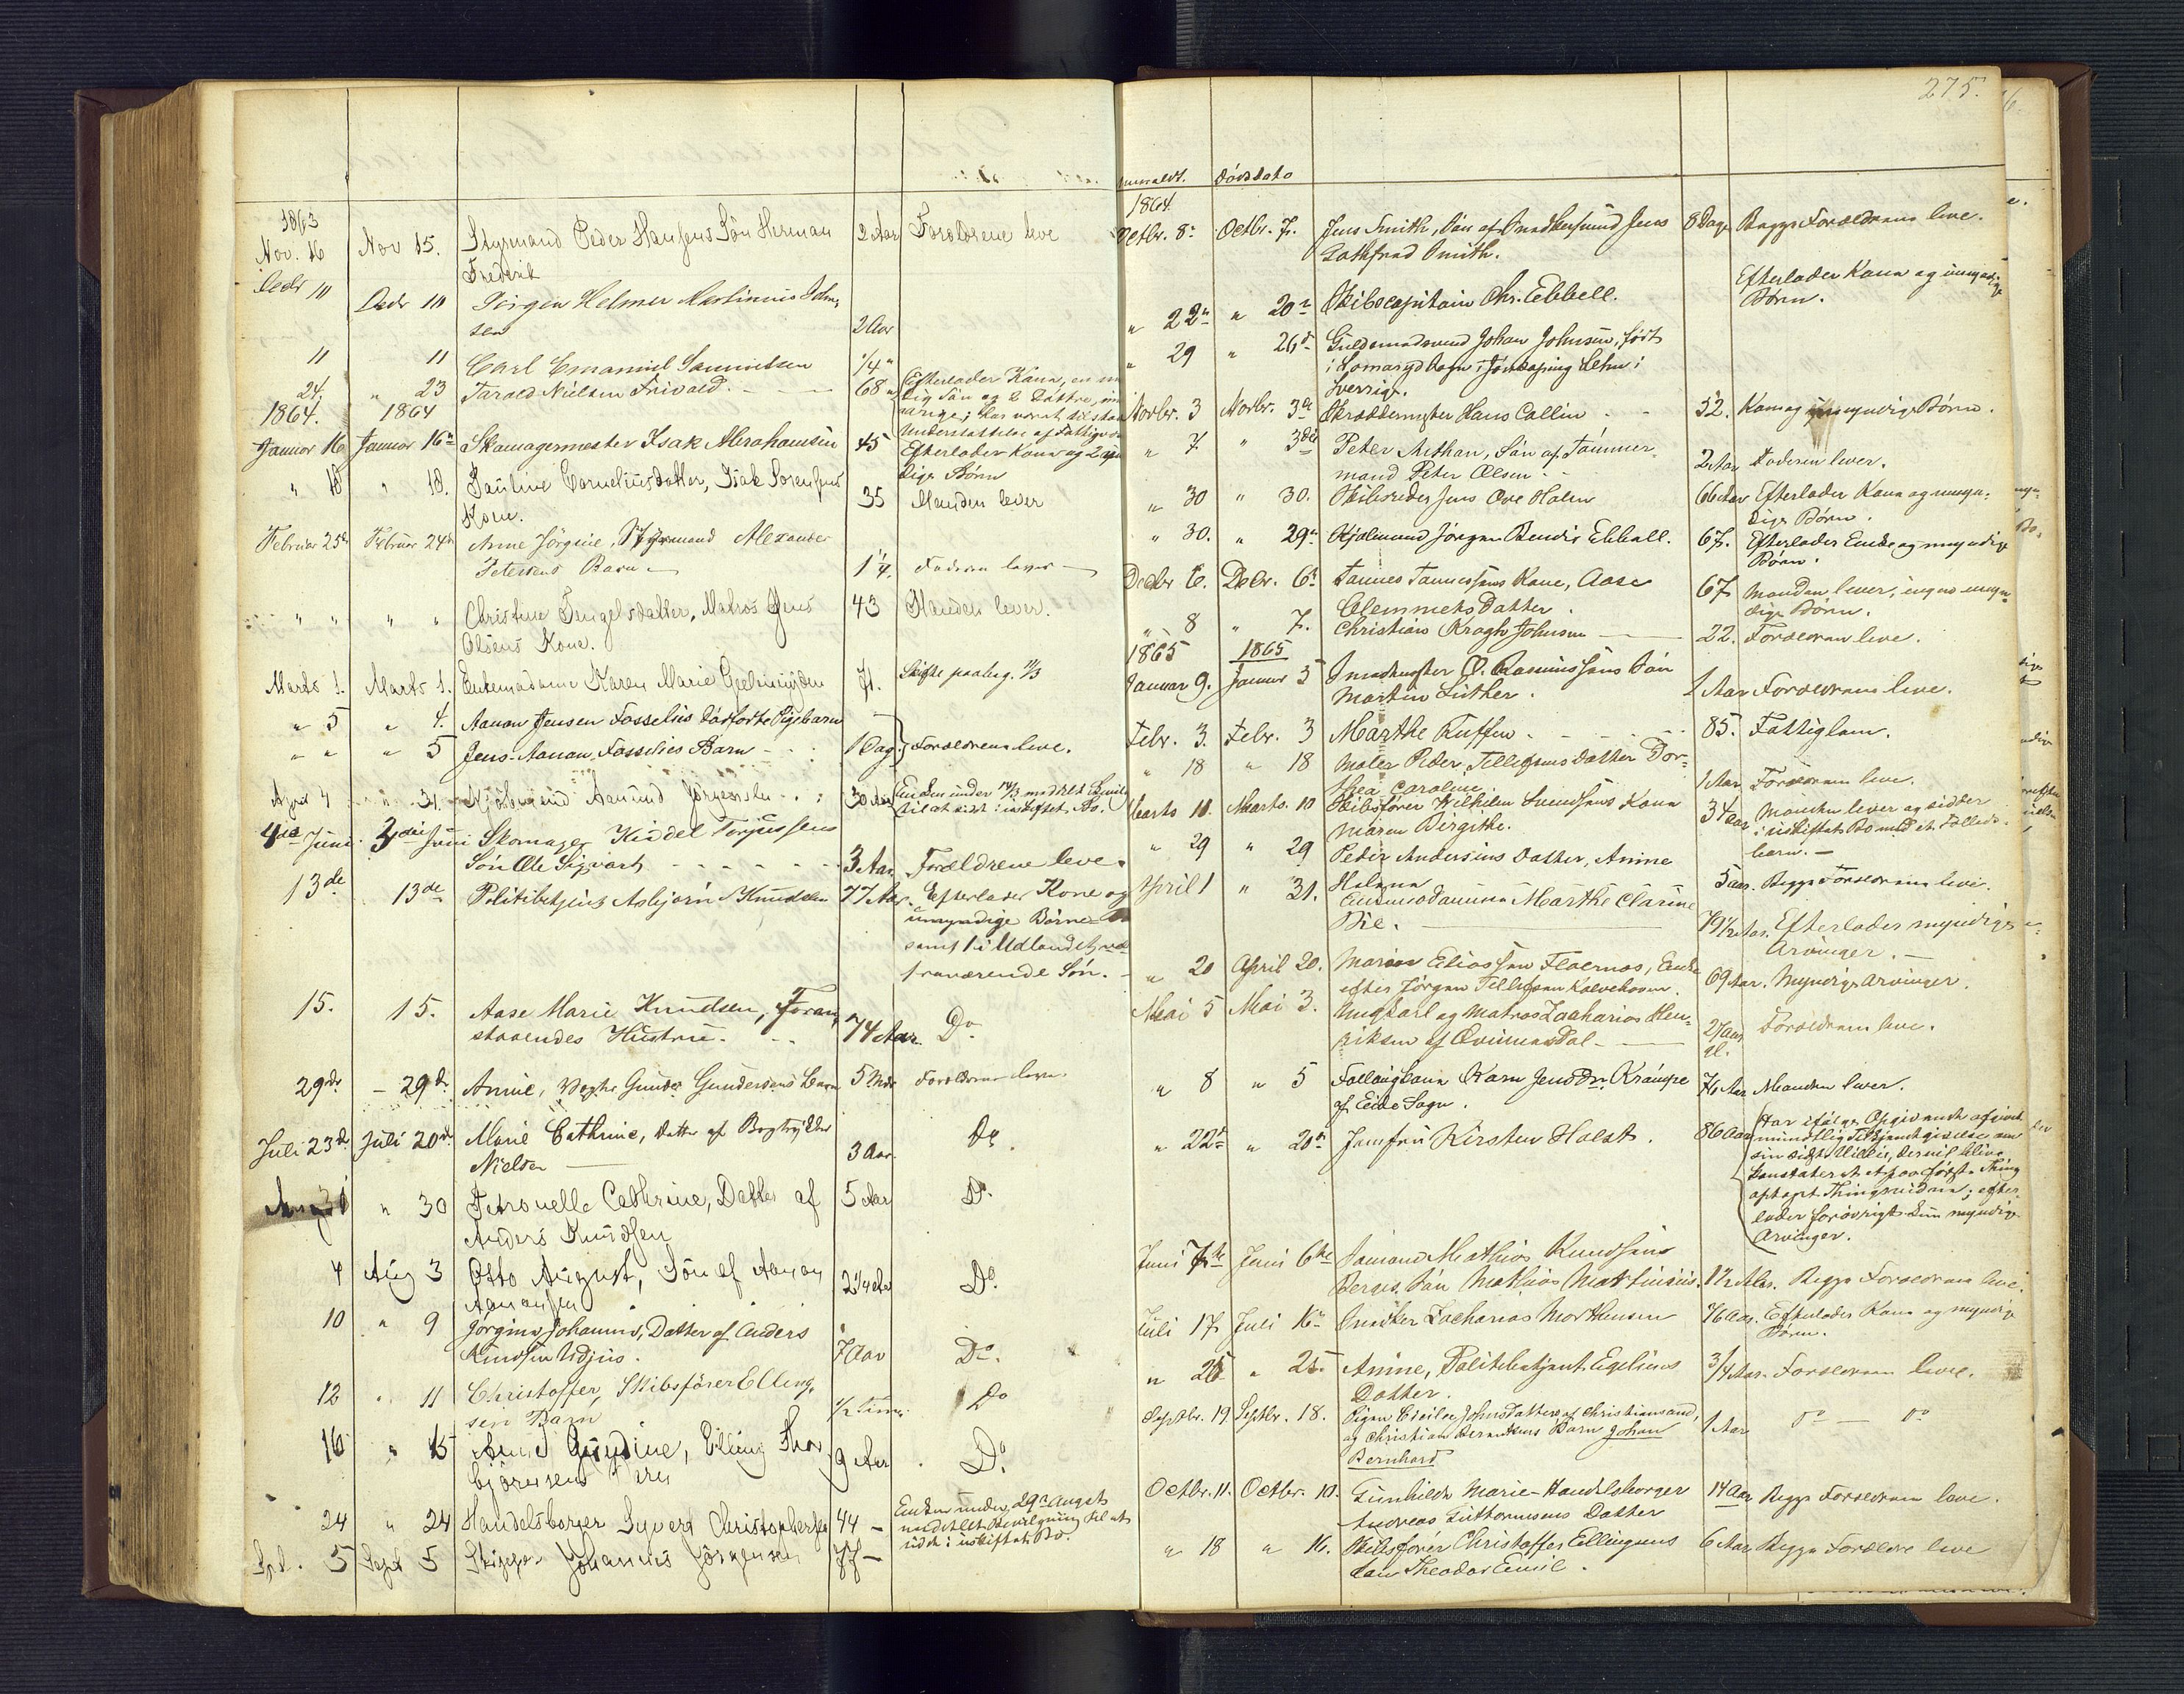 1863
Nov. 16 Nov 15. Styrmand Peder Hansens Søn Herman 2 Aar Forældrene leve
Frederik
Decbr 10 Decbr 10 Jørgen Helmer Martinius John-
sen 2 Aar
11 11 Carl Emanuel 1/4 "
24. " 23 Tarald Nielsen Trivold 68 " Efterlader Kone, en
dig Søn og 2 Døttre,
Understøttelse af
1864. 1864
Januar 16 Januar 16 Skomagermester Isak Abrahamsen 45 Efterlader Kone og 2
dige Børn
" 18 " 18. Pauline Corneliusdatter, Isak Sørensens 35 Manden lever
Kone.
Februar 25 Februar 24 Anne Jørgine, Styrmand Alexander
Petersens Barn 1 1/4. Faderen lever
" " " " Christine Tengelsdatter, Matros Jens 43 Manden lever.
Olsens Kone.
Marts 1. Marts 1. Enkemadame Karen Marie 71. Skifte
" 5 " 4. Aanon Jensen Fosselies dødfødte Pigebarn —
" " " 5 Jens Aanon Fosselies Barn 1 Dag Forældrene leve.
April 4 " 31. Aanund Jørgensen 30 Aar Enken under meddelt
til at sidde i uskiftet Bo.
4de Juni 3die Juni Skomager Kiddel Terjussens
Søn Ole Sigvart 3 Aar Forældrene leve.
13de 13de Politibetjent Asbjørn Knudsen 77 Aar. Efterlader Kone og
umyndige Børn
samt 1 i Udlandet
fraværende Søn.
15. 15. Aase Marie Knudsen, Foran
staaendes Hustrue. 74 Aar. Do
29de 29de Anne, Gunder Gundersens Barn 5 Mdr Forældrene leve.
Juli 23de Juli 20de Marie Cathrine, Datter af Bogtrykker
Nielsen 3 Aar. Do.
31 " 30 Petronelle Cathrine, Datter af 5 Aar Do.
Anders Knudsen
4 Aug 3 Otto August, Søn af Aanon 2 1/4 Aar Do.
Aanonsen
10 " 9 Jørgine Johanne, Datter af Anders
Knudsen Udjus. 7 Aar Do.
12 " 11 Christoffer, Skibsfører Elling-
sen Barn 1/2 Time. Do
16 " 15 Gundine, Elling Thor
bjørnsens 9 Aar Do
24 " 24 Handelsborger Syvert Christophersen 44 — Enken under 29de August
meddelt Bevilgning til at
sidde i uskiftet Bo.
Sept. 5 Sept 5 Skipper Johannes Jørgensen 77 —
275.
anmeldt. Dødsdato
1864.
Octbr. 8 Octbr. 7. Jens Smith, Søn af Jens 8 Dage Begge Forældrene leve.
Gothfred Smith.
" 22 " 20 Skibscapitain Chr. Ebbell. Efterlader Kone og umyndige
Børn.
" 29 " 26 Guldsmedsvend Johan Johnsen, født
i Sogn i Jønkøping Lehn i
Sverrige.
Novbr. 3 Novbr. 3 Skræddermester Hans Callin 52. Kone og umyndige Børn.
" 7 " 3die Peter Nethan, Søn af Tømmer-
mand Peter Olsen 2 Aar Faderen lever.
" 30 " 30. Skibsreder Jens Ove Holm 66 Aar Efterlader Kone og umyn-
dige Børn.
" 30. " 29 Jørgen Bendix Ebbell. 67. Efterlader Enke og myndige
Børn.
Decbr 6. Decbr. 6 Tønnes Tønnessens Kone, Aase
Clemmets Datter. 67 Manden lever, ingen umyn-
dige Børn.
" 8 " 7. Christian Krogh Johnsen 22. Forældrene leve.
1865 1865
Januar 9. Januar 5 O. Rasmussens Søn
Martin Luther. 1 Aar Forældrene leve.
Febr. 3. Febr. 3 Marthe Kuffen 85. Fattiglem.
" 18 " 18 Maler Peder Tellefsens Datter Dor-
thea Caroline. 1 Aar Forældrene leve.
Marts 10. Marts. 10 Skibsfører Wilhelm Svendsens Kone 34 Aar Manden lever og sidder
Maren Birgithe. i uskiftet Bo med et Fælleds-
barn.
" 29 " 29 Peder Andersens Datter, Anine
Helene 5 Aar. Begge Forældrene leve.
April 1 " 31. Enkemadamme Marthe Clarine
Bie. 79 1/2 Aar. Efterlader myndige
Arvinger.
" 20 April 20. Maren Eliassen Floernes, Enke
efter Jørgen Tellefsen Kalvehaven. 69 Aar. Myndige Arvinger.
Mai 5 Mai 3. Ungkarl og Matros Zacharias Hen-
riksen af 27 Aar Forældrene leve.
gl.
" 8 " 5 Karen Jensdtr. Krampe 76 Aar Manden lever.
af Eide Sogn.
" 22 " 20 Jomfru Kirsten Holst. 86 Aar Har ifølge Opgivende afgivet
mundtlig Tilkjendegivelse om
sin sidste Villie, der vil blive
Constateret ved paa første Thing
optaget Thingsvidne; efter-
lader forøvrigt kun myndige
Arvinger.
Juni 7de Juni 6te Sømand Mathias Knudsens
Berges Søn Mathias Martinius. 1 1/2 Aar. Begge Forældrene leve.
Juli 17 Juli 16 Snedker Zacharias Morthensen 76 Aar. Efterlader Kone og myndige
Børn.
" 25 " 25. Anine, Politibetjent Egelieus 3/4 Aar. Forældrene leve.
Datter.
Septbr. 19. Septbr. 18. Pigen Cecilie Johnsdatter af Christiansand,
og Christian Berentsens Barn Johan 1 Aar Do — Do
Bernhard
Octbr. 11. Octbr. 10. Gunhilde Marie - Handelsborger 14 Aar Begge Forældrene leve.
Andreas Guttormsens Datter
" 18 " 16. Skibsfører Christoffer Ellingsens 6 Aar Begge Forældre leve
Søn Theodor Emil.